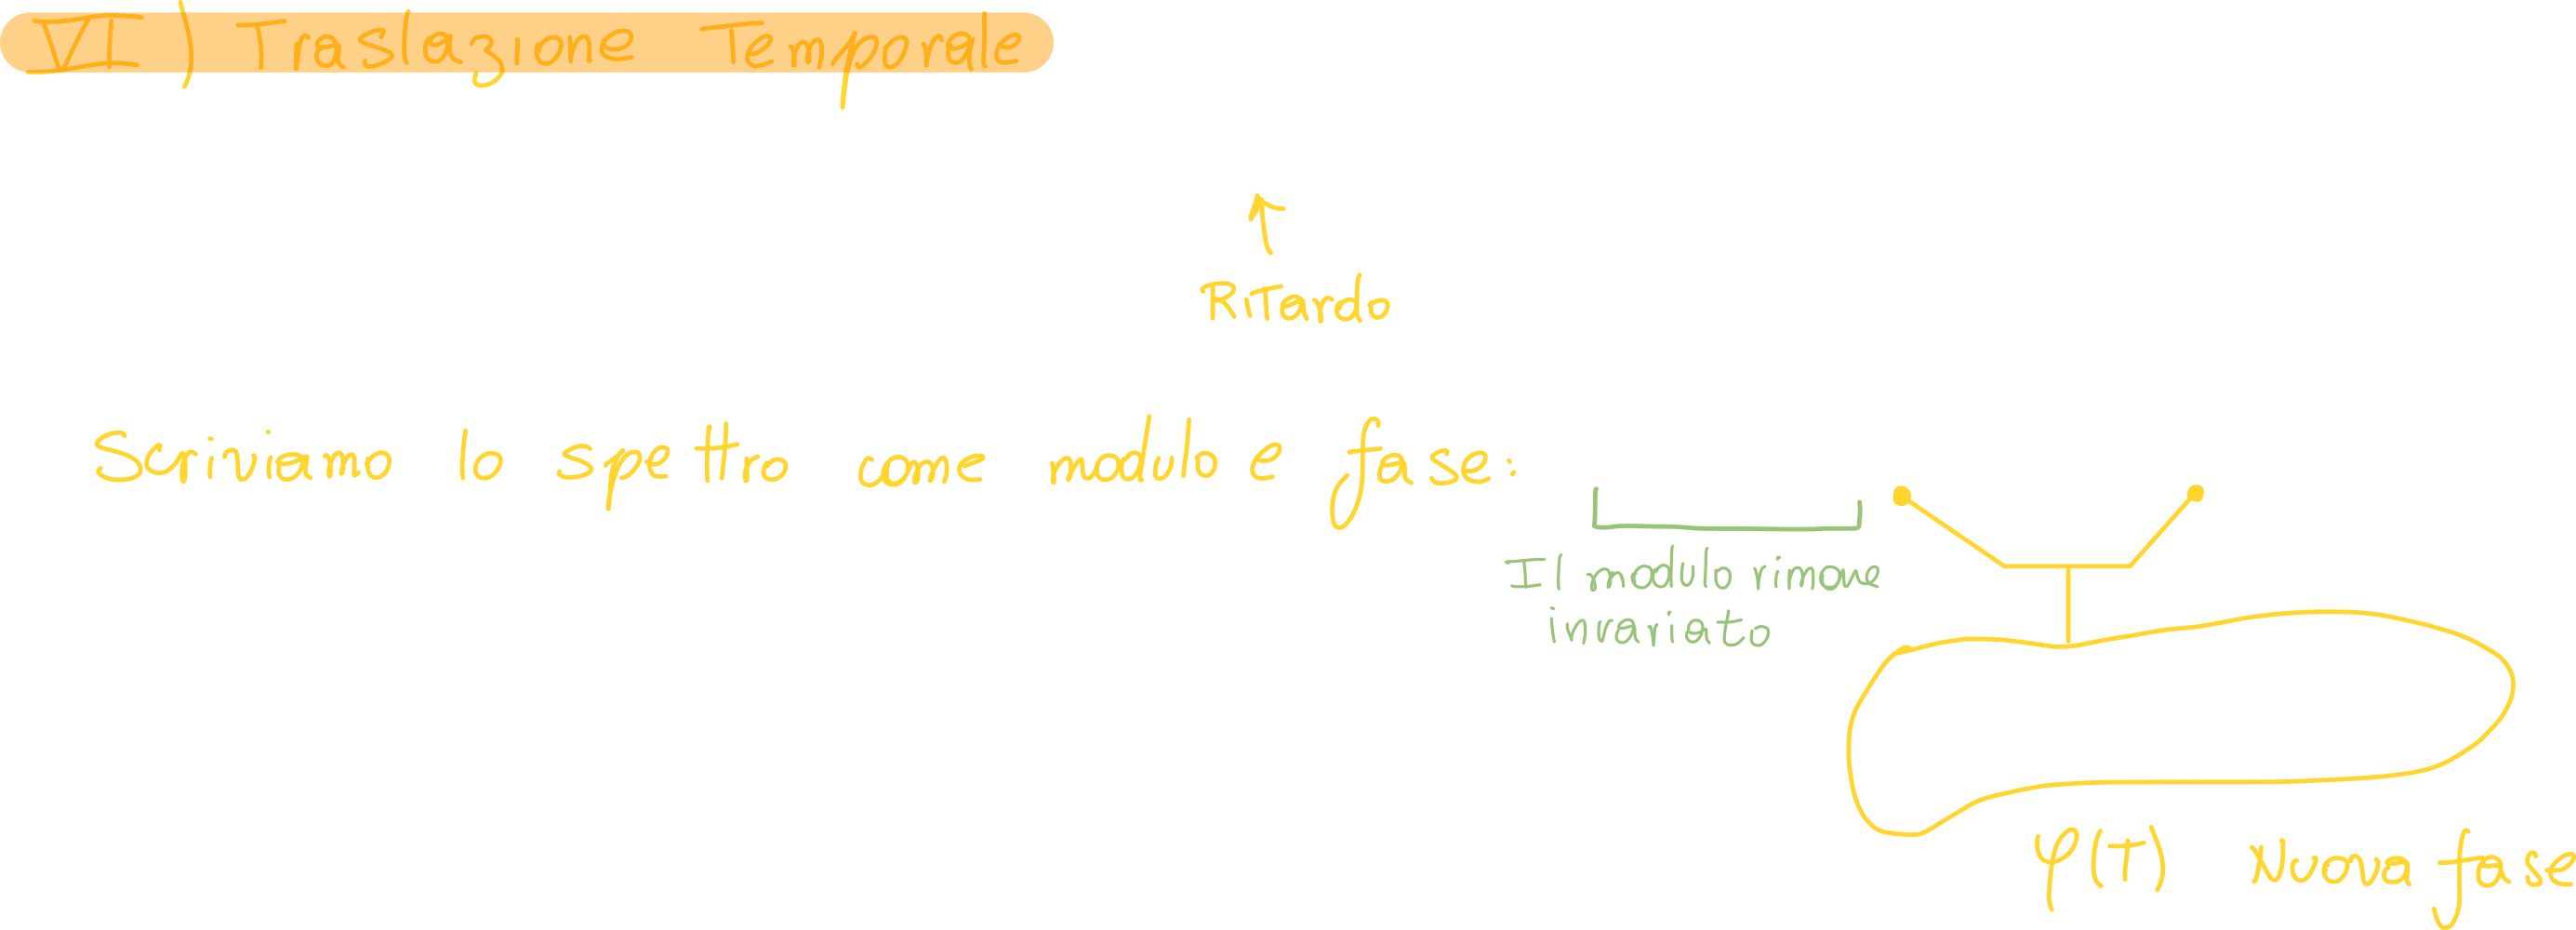 VI) Traslazione Temporale
Ritardo
Scriviamo lo spettro come modulo e fase:
Il modulo rimane
invariato
φ(T) Nuova fase